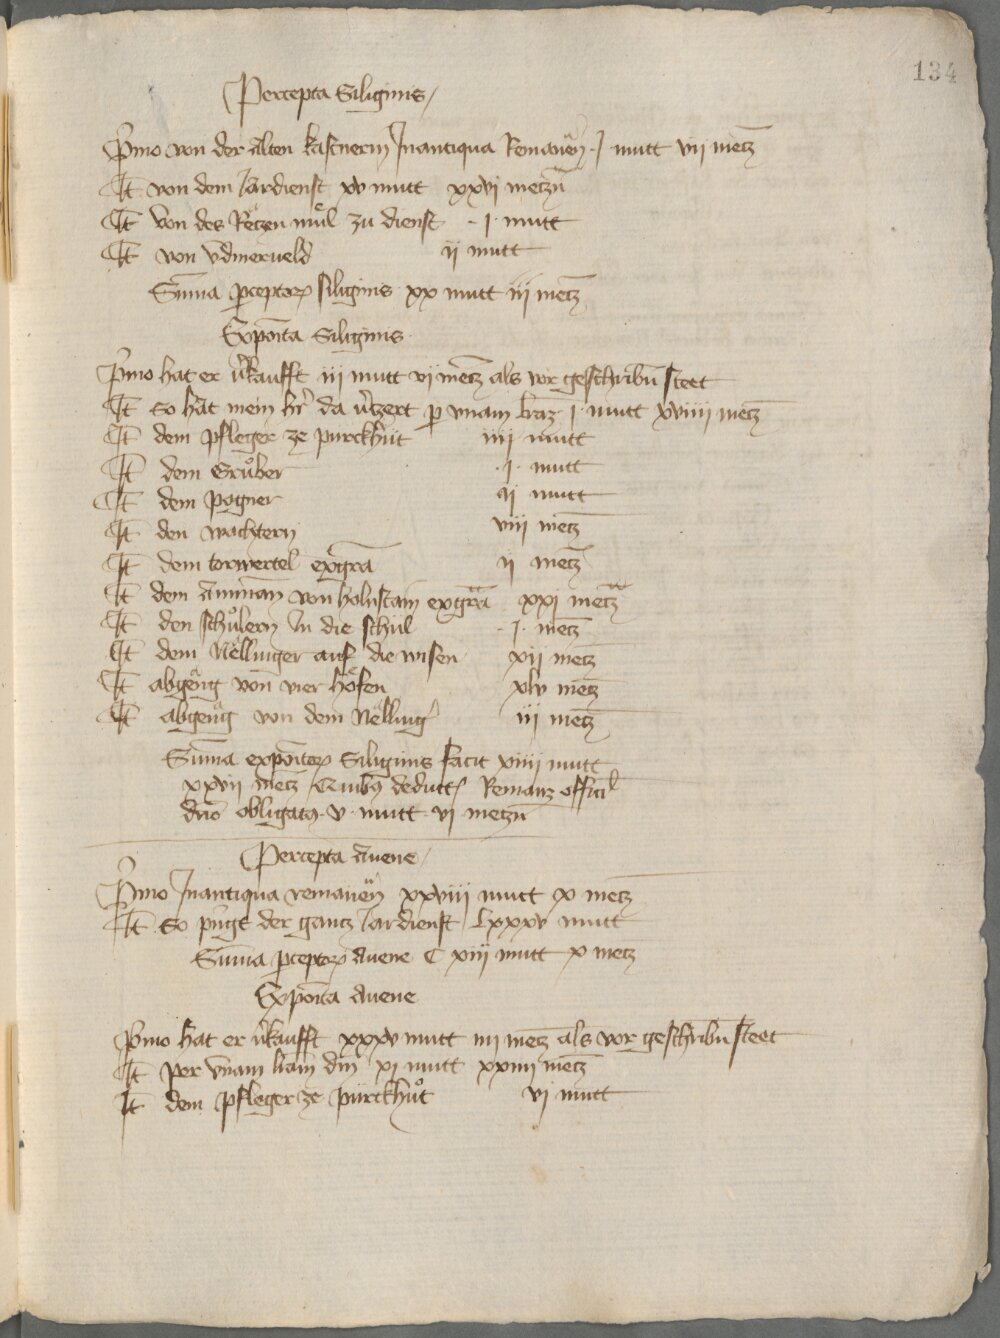 134
Percepta Siliginis
Primo von der alten kastnerin Inantiqua Remanen̄ · I · mutt vii metz
It von dem Jardienst xv mutt xxvi metzn̄
It von des Retzen mül zu dienst · I · mutt
It von Vdmerueld ii mutt
Sum̄a p̄ceptor̄ siliginis xx mutt iii metz
Expoīta Siliginis
P̄mo hat er v̄kaufft iii mutt vi metz als vor geschribn̄ steet
It so hat mein hr̄ da v̄tzert p̄ vnam · I · mutt xviiii metz
It dem pfleger ze purckhut iiii mutt
It dem Grůber · I · mutt
It dem pogner ii mutt
It den wachtern viii metz
It dem torwertel exgr̄a ii metz
It dem amman̄ von holnstain exgr̄a xxi metz
It den schůlern in die schul · I · metz
It dem Nëllinger auf die wisen xii metz
It abgëng von vier höfen xlv metz
It abgëng von dem Nëllinḡ iii metz
Sum̄a expoītor̄ Siliginis facit xiiii mutt
xxvii metz Quibꝫ deductꝭ Remanꝫ official̄
dn̄o obligatꝯ · v · mutt vi metzn̄
Percepta auene
P̄mo Inantiqua remanen̄ xxviii mutt x metz
It So p̄ngt der gantz Jardienst lxxxv mutt
Sum̄a p̄ceptor̄ auene C xiii mutt x metz
Expoīta auene
p̄mo hat er v̄kaufft xxxv mutt iiii metz als vor geschribn̄ steet
It per vnam dn̄i xi mutt xxiiii metz
It dem pfleger ze purckhůt vi mutt